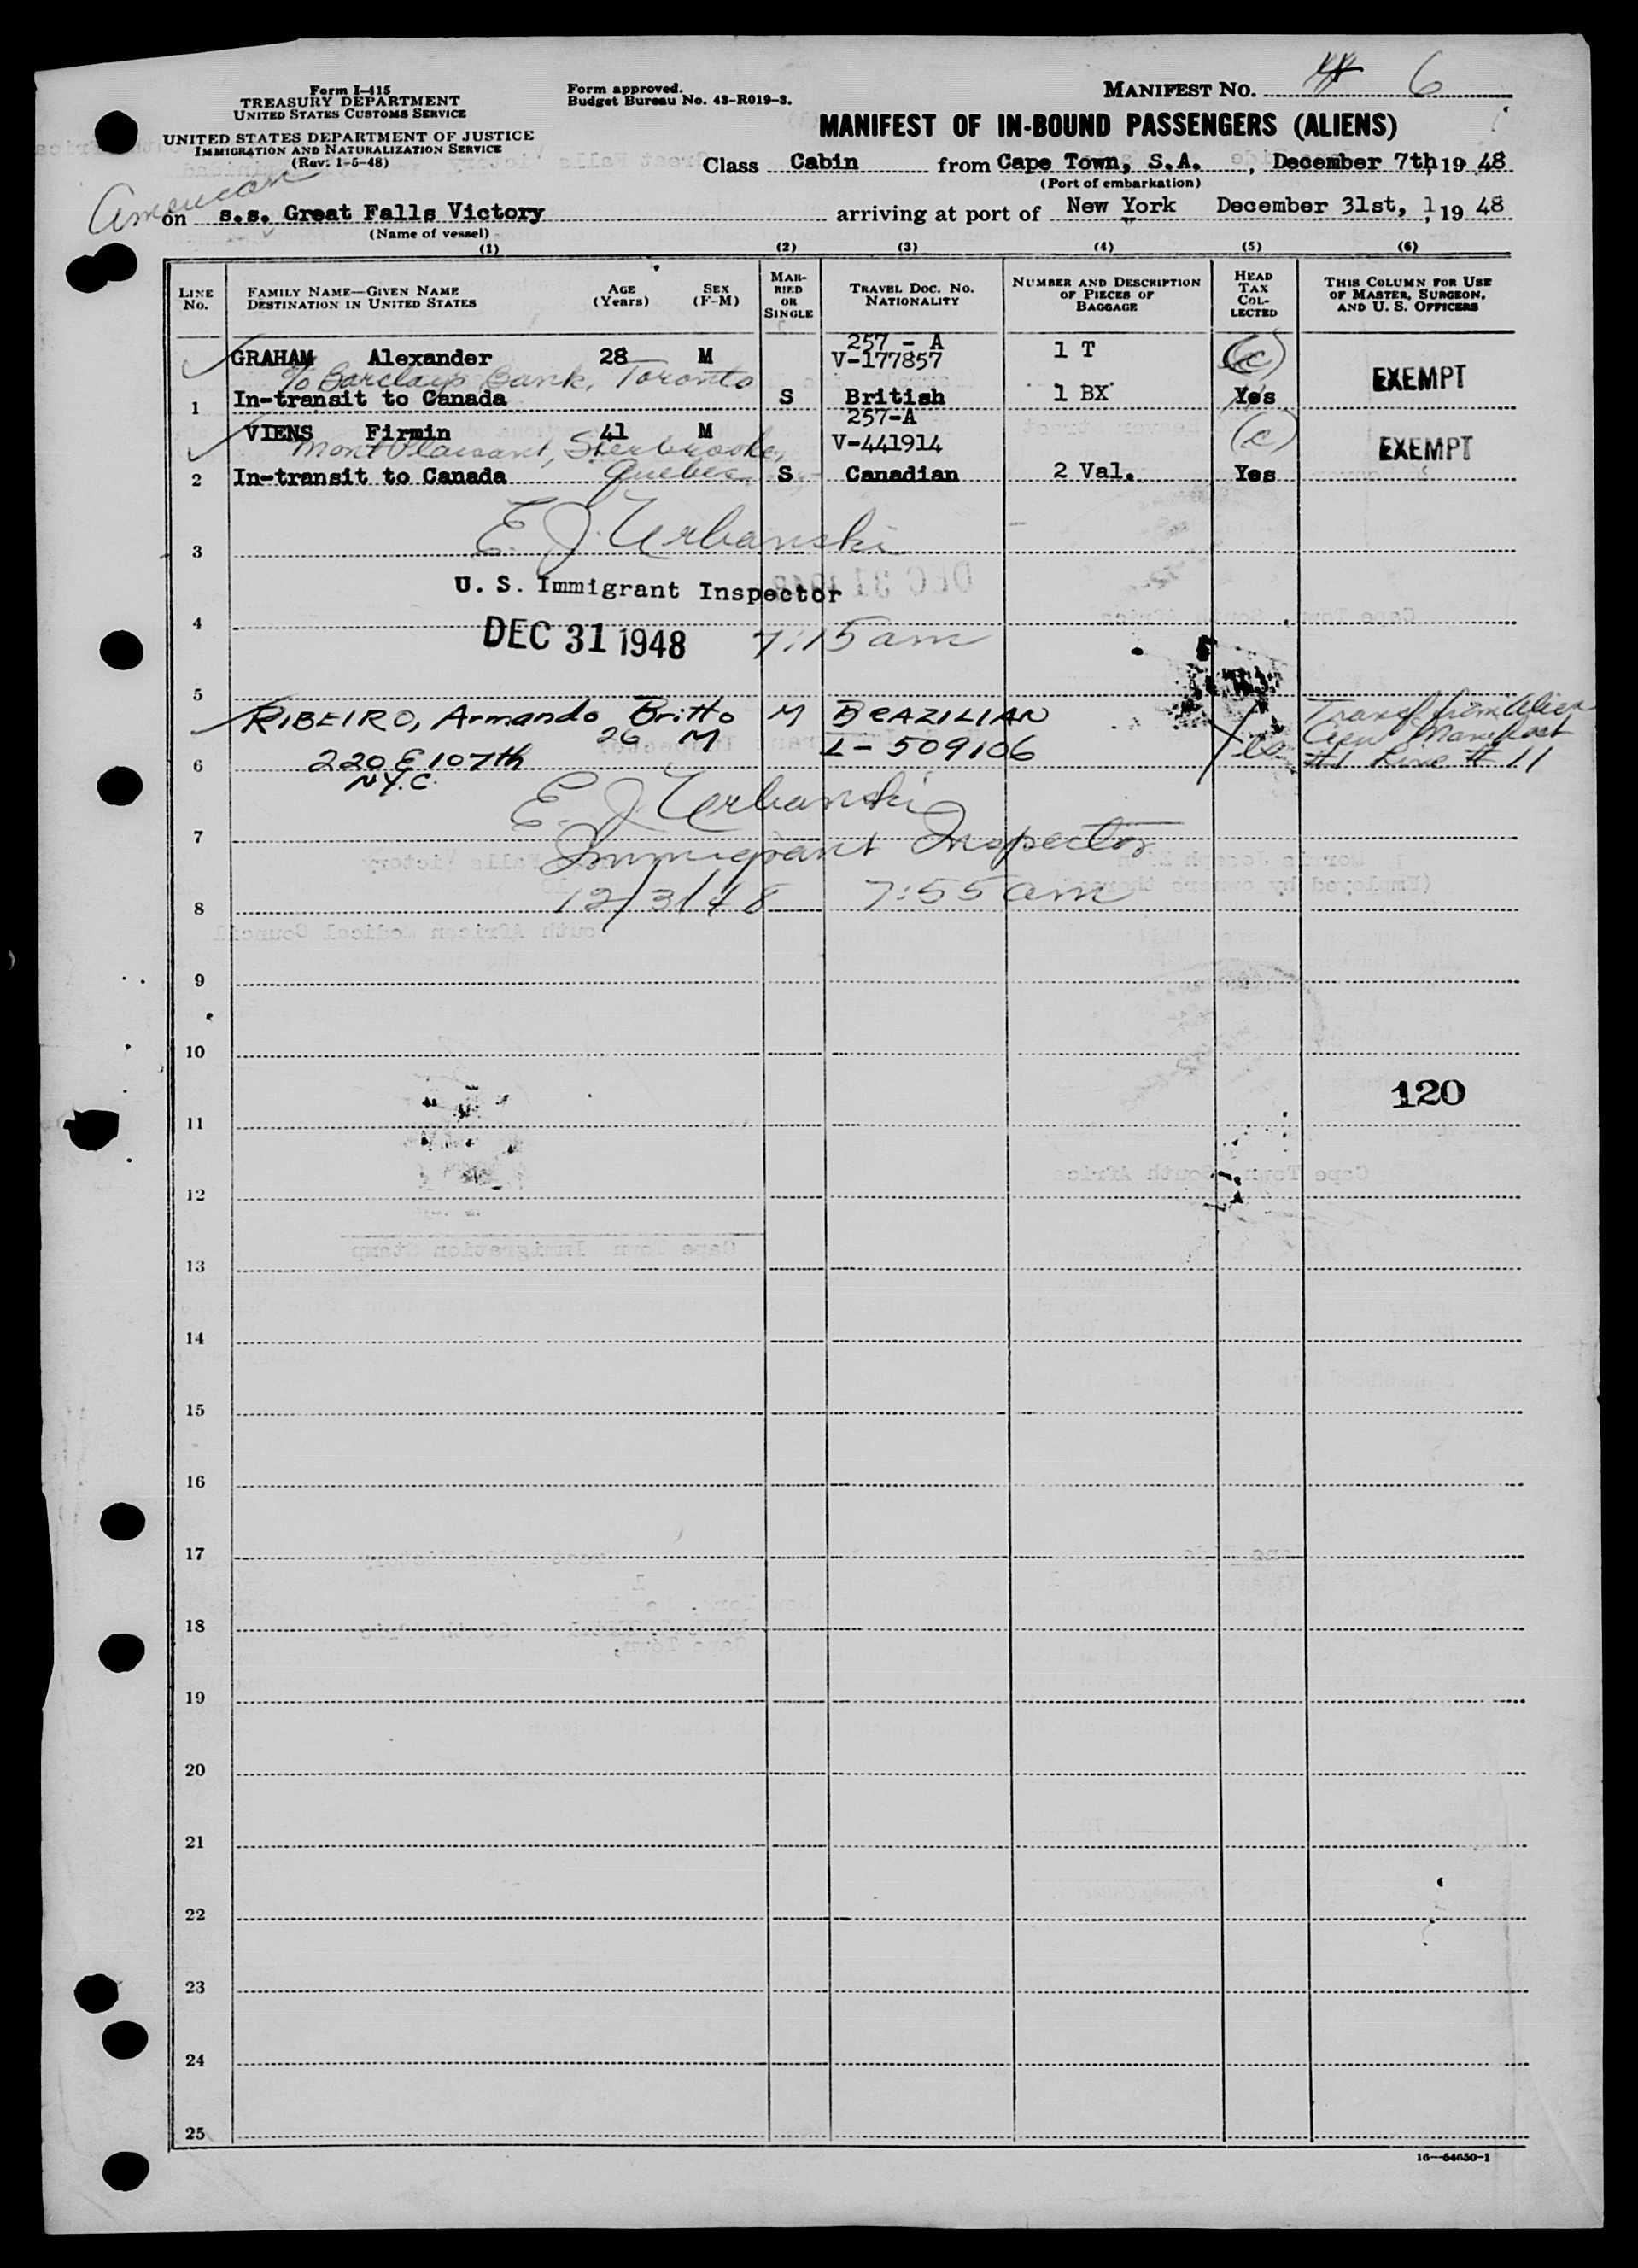 Form I-415
TREASURY DEPARTMENT
UNITED STATES CUSTOMS SERVICE
UNITED STATES DEPARTMENT OF JUSTICE
IMMIGRATION AND NATURALIZATION SERVICE
(Rev. 1-5-48)
Form approved.
Budget Bureau No. 43-R019-3.
MANIFEST NO. 6
MANIFEST OF IN-BOUND PASSENGERS (ALIENS)
Class Cabin from Cape Town, S.A. , December 7th, 19 48
(Port of embarkation)
American
on s.s. Great Falls Victory arriving at port of New York December 31st, 1 19 48
(Name of vessel)
(1) (2) (3) (4) (5) (6)
LINE NO. FAMILY NAME—GIVEN NAME DESTINATION IN UNITED STATES AGE (Years) SEX (F-M) MARRIED OR SINGLE TRAVEL DOC. NO. NATIONALITY NUMBER AND DESCRIPTION OF PIECES OF BAGGAGE HEAD TAX COLLECTED THIS COLUMN FOR USE OF MASTER, SURGEON, AND U. S. OFFICERS
257 - A
GRAHAM Alexander 28 M V-177857 1 T (c)
c/o Barclays Bank, Toronto EXEMPT
1 In-transit to Canada S British 1 BX Yes
257-A
VIENS Firmin 41 M V-441914 (c)
Mont Plaisant, Sherbrooke, EXEMPT
2 In-transit to Canada Quebec S Canadian 2 Val. Yes
E. J. Urbanski
3
U. S. Immigrant Inspector
4
DEC 31 1948 7:15 am
5
RIBEIRO, Armando Britto M BRAZILIAN Transf from Alien
26 M I-509106 Yes Crew Manifest
6 220 E 107th #1 Line # 11
N.Y.C.
E. J. Urbanski
7
Immigrant Inspector
8 12/31/48 7:55 am
9
10
120
11
12
13
14
15
16
17
18
19
20
21
22
23
24
25
16—54650-1